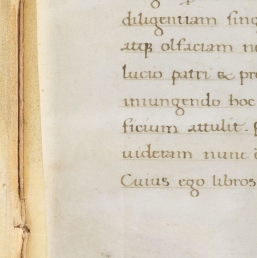 diligentiam sing
atq; olfaciam ne
lucio patri & pro
iniungendo hoc
ficium attulit.
uideram nunc
Cuius ego libros